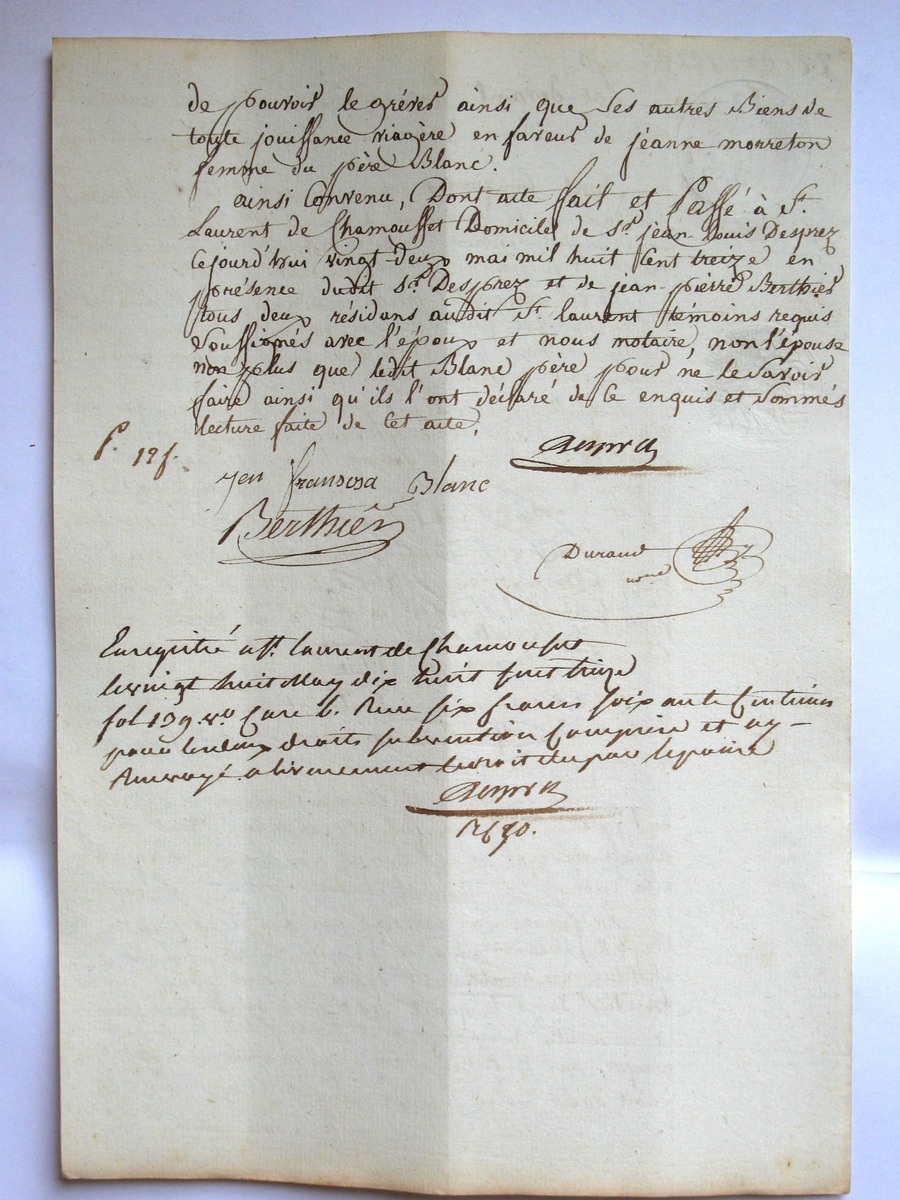 de pouvoir le gréver ainsi que ses autres Biens de
toute jouissance viagère en faveur de jeanne morreton
femme du père Blanc.
ainsi Convenu, Dont acte fait et Passé à St.
Laurent de Chamousset Domicile de sr. jean-louis Desprez
Cejourd'hui vingt-deux mai mil huit Cent treize en
présence dudit sr. Desprez et de jean-pierre Berthier
tous deux résidans audit St. laurent témoins requis
Soussignés avec l'époux et nous notaire, non l'épouse
non plus que ledit Blanc père pour ne le Savoir
faire ainsi qu'ils l'ont déclaré de Ce enquis et Sommés
lecture faite de Cet acte.
12f.
Desprez
jean fransosa Blanc
Berthier
Durand
nore
Enregistré a St. laurent de Chamousset
le vingt huit May dix huit Cent treize
fol 139 vo Case 6. Reçu six francs soixante Centimes
pour les deux droits subvention Comprise et ay
Renvoyé
Desprez